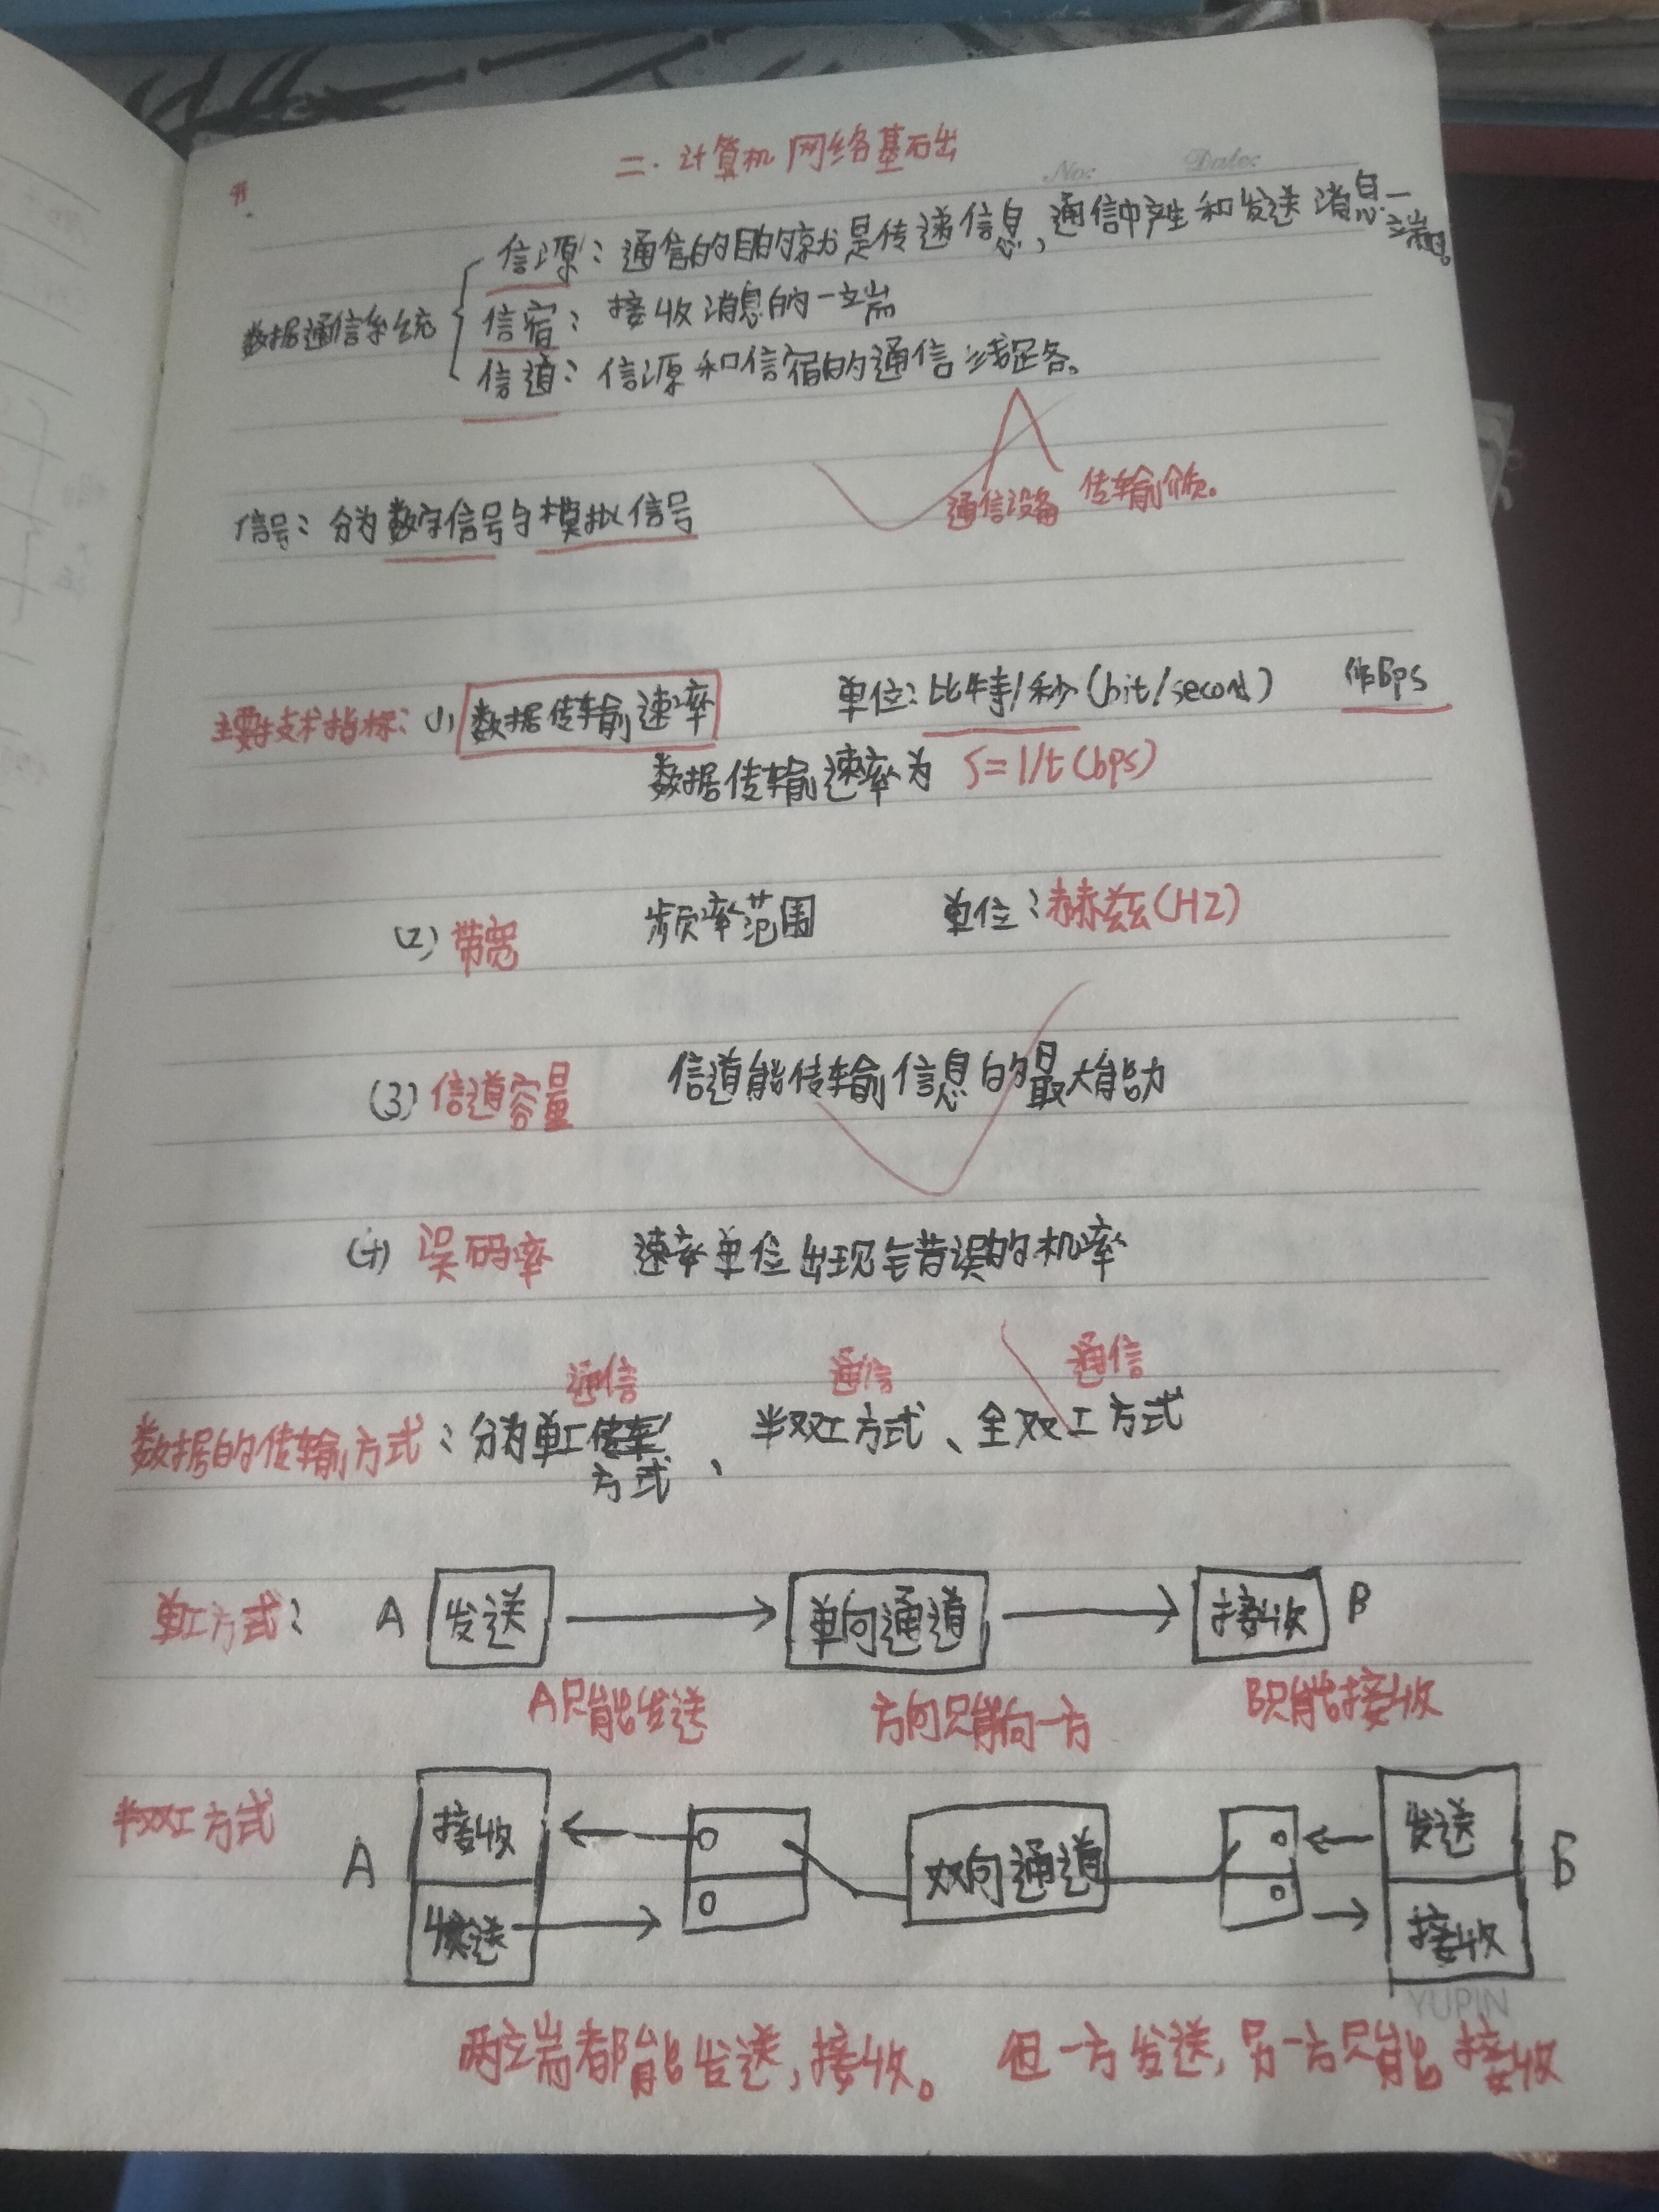 二.计算机网络基础
No: Date:
书
数据通信系统
信源：通信的目的就是传递信息，通信中产生和发送消息一端。
信宿：接收消息的一端
信道：信源和信宿的通信线路。
通信设备 传输介质。
信号：分为数字信号与模拟信号
主要技术指标：(1) 数据传输速率 单位：比特/秒(bit/second) Bps
数据传输速率为 S=1/t(bps)
(2) 带宽 频率范围 单位：赫兹(HZ)
(3) 信道容量 信道能传输信息的最大能力
(4) 误码率 速率单位出现错误的机率
通信 通信 通信
数据的传输方式：分为单工方式、半双工方式、全双工方式
单工方式： A 发送 单向通道 接收 B
A只能发送 方向只能向一方 B只能接收
半双工方式
A 接收 发送 双向通道 发送 接收 B
YUPIN
两立端都能发送，接收。 但一方发送，另一方只能接收